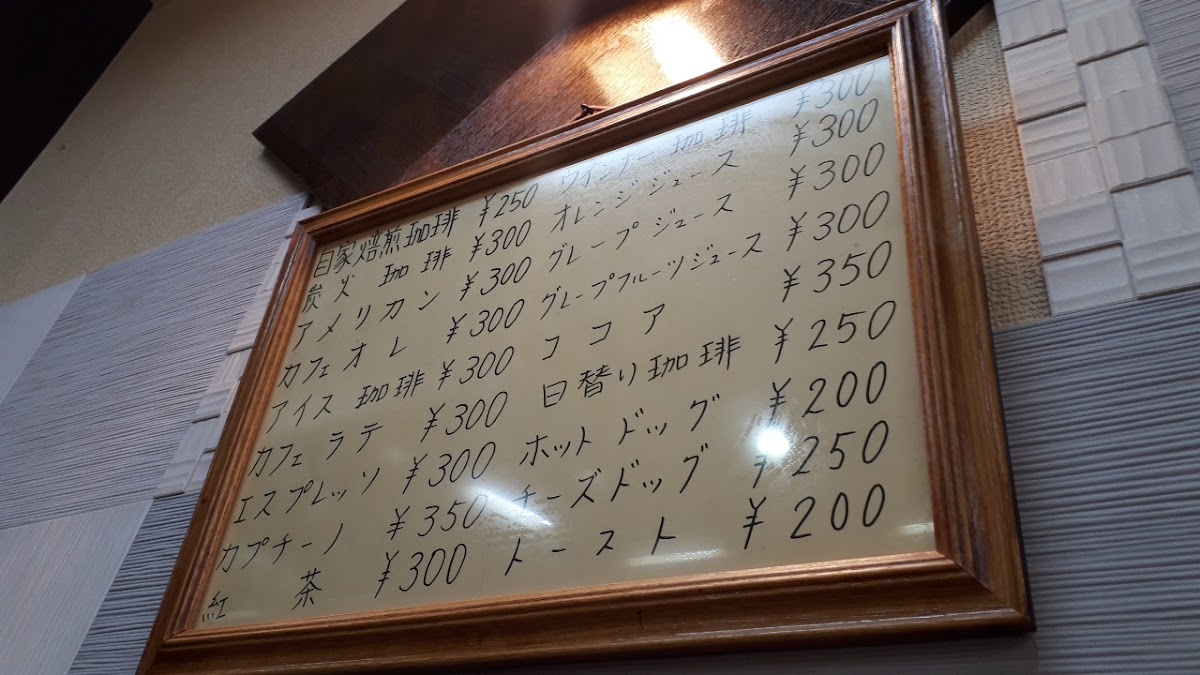 自家焙煎珈琲 ¥250
炭火珈琲 ¥300
アメリカン ¥300
カフェオレ ¥300
アイス珈琲 ¥300
カフェラテ ¥300
エスプレッソ ¥300
カプチーノ ¥350
紅茶 ¥300
ウインナー珈琲 ¥300
オレンジジュース ¥300
グレープジュース ¥300
グレープフルーツジュース ¥300
ココア ¥350
日替り珈琲 ¥250
ホットドッグ ¥200
チーズドッグ ¥250
トースト ¥200